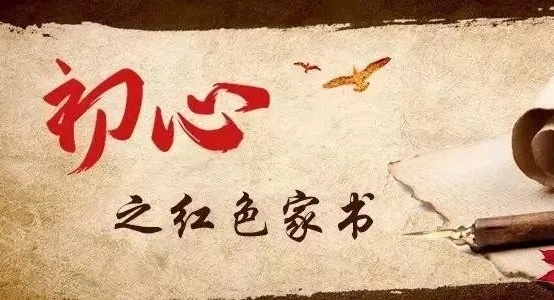 初心
之红色家书